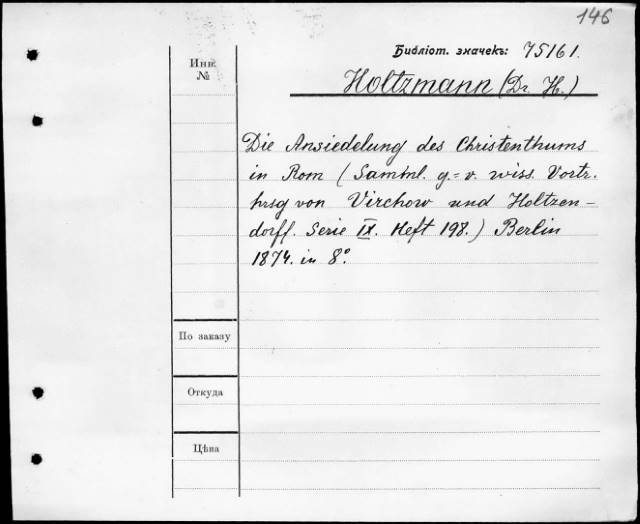 146
Библіот. значекъ: 75161.
Инв.
№
Holtzmann (Dr. H.)
Die Ansiedelung des Christenthums
in Rom (Samml. g.=v. wiss. Vortr.
hrsg von Virchow und Holtzen-
dorff. Serie IX. Heft 198.) Berlin
1874. in 8°.
По заказу
Откуда
Цѣна